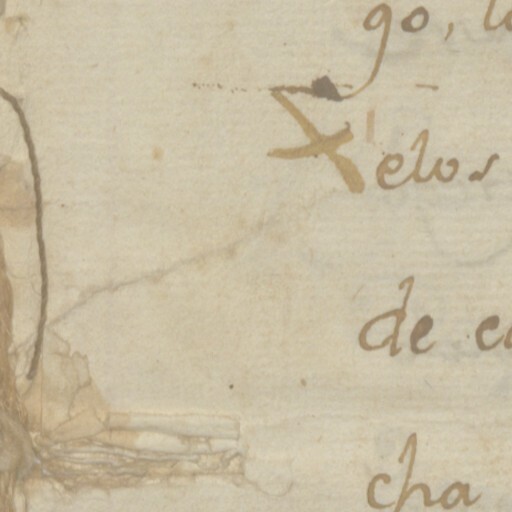 go, l
Xelos
de c
cha